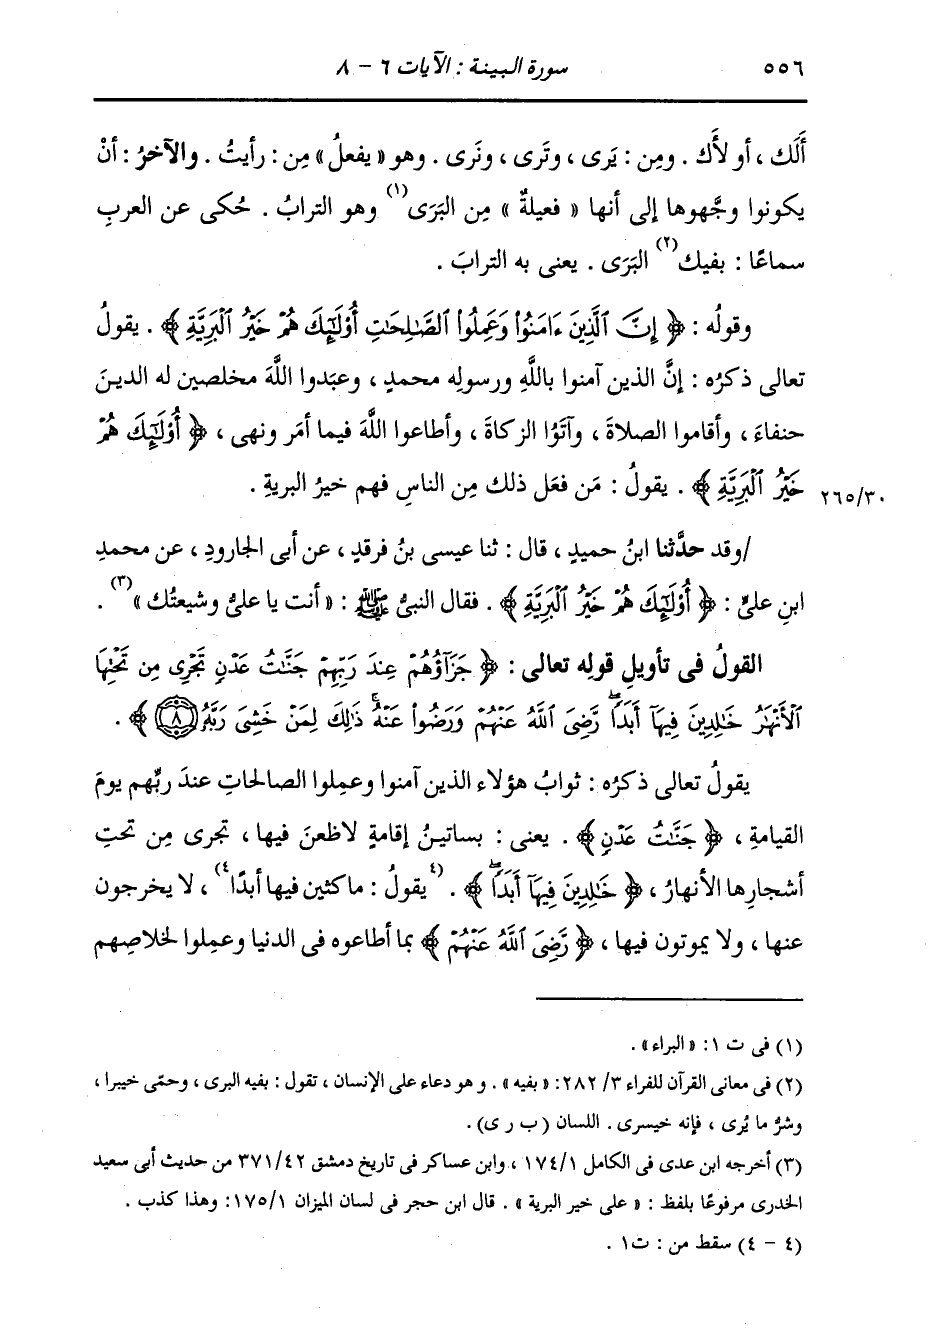 ٥٥٦ سورة البينة : الآيات ٦ - ٨
أَلَك ، أو لأَك . ومِن : يَرى ، وتَرى ، ونَرى . وهو « يفعلُ » مِن : رأيتُ . والآخرُ : أنْ
يكونوا وجَّهوها إلى أنها « فعيلةٌ » مِن البَرَى(١) وهو الترابُ . حُكى عن العربِ
سماعًا : بفيك(٢) البَرَى . يعنى به الترابَ .
وقولُه : ﴿ إِنَّ ٱلَّذِينَ ءَامَنُوا۟ وَعَمِلُوا۟ ٱلصَّـٰلِحَـٰتِ أُو۟لَـٰٓئِكَ هُمْ خَيْرُ ٱلْبَرِيَّةِ ﴾ . يقولُ
تعالى ذكرُه : إنَّ الذين آمنوا باللَّهِ ورسولِه محمدٍ ، وعبَدوا اللَّهَ مخلصين له الدينَ
حنفاءَ ، وأقاموا الصلاةَ ، وآتَوُا الزكاةَ ، وأطاعوا اللَّهَ فيما أمَر ونهى ، ﴿ أُو۟لَـٰٓئِكَ هُمْ
خَيْرُ ٱلْبَرِيَّةِ ﴾ . يقولُ : مَن فعَل ذلك مِن الناسِ فهم خيرُ البريةِ . ٢٦٥/٣٠
/وقد حدَّثنا ابنُ حميدٍ ، قال : ثنا عيسى بنُ فرقدٍ ، عن أبى الجارودِ ، عن محمدِ
ابنِ علىٍّ : ﴿ أُو۟لَـٰٓئِكَ هُمْ خَيْرُ ٱلْبَرِيَّةِ ﴾ . فقال النبىُّ ﷺ : « أنت يا علىُّ وشيعتُك »(٣) .
القولُ فى تأويلِ قولِه تعالى : ﴿ جَزَآؤُهُمْ عِندَ رَبِّهِمْ جَنَّـٰتُ عَدْنٍ تَجْرِى مِن تَحْتِهَا
ٱلْأَنْهَـٰرُ خَـٰلِدِينَ فِيهَآ أَبَدًا ۖ رَّضِىَ ٱللَّهُ عَنْهُمْ وَرَضُوا۟ عَنْهُ ۚ ذَٰلِكَ لِمَنْ خَشِىَ رَبَّهُۥ ٨ ﴾ .
يقولُ تعالى ذكرُه : ثوابُ هؤلاء الذين آمنوا وعمِلوا الصالحاتِ عندَ ربِّهم يومَ
القيامةِ ، ﴿ جَنَّـٰتُ عَدْنٍ ﴾ . يعنى : بساتينُ إقامةٍ لا ظعنَ فيها ، تجرى مِن تحتِ
أشجارِها الأنهارُ ، ﴿ خَـٰلِدِينَ فِيهَآ أَبَدًا ۖ ﴾ . (٤يقولُ : ماكثين فيها أبدًا٤) ، لا يخرجون
عنها ، ولا يموتون فيها ، ﴿ رَّضِىَ ٱللَّهُ عَنْهُمْ ﴾ بما أطاعوه فى الدنيا وعمِلوا لخلاصِهم
(١) فى ت ١ : « البراء » .
(٢) فى معانى القرآن للفراء ٣/ ٢٨٢ : « بفيه » . وهو دعاء على الإنسان ، تقول : بفيه البرى ، وحمّى خيبرا ،
وشرُّ ما يُرى ، فإنه خيسرى . اللسان (ب ر ى) .
(٣) أخرجه ابن عدى فى الكامل ١٧٤/١ ، وابن عساكر فى تاريخ دمشق ٣٧١/٤٢ من حديث أبى سعيد
الخدرى مرفوعًا بلفظ : « على خير البرية » . قال ابن حجر فى لسان الميزان ١٧٥/١ : وهذا كذب .
(٤ - ٤) سقط من : ت١ .